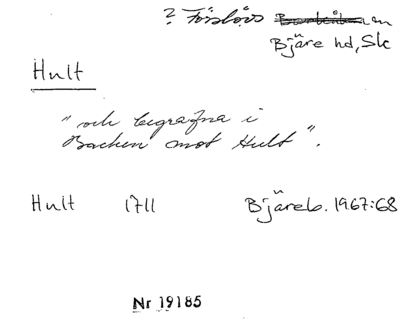 ? Förslövs sn
Bjäre hd, Sk
Hult
"och begrafna i
Backen mot Hult".
Hult 1711 Bjäreb. 1967:68
Nr 19185